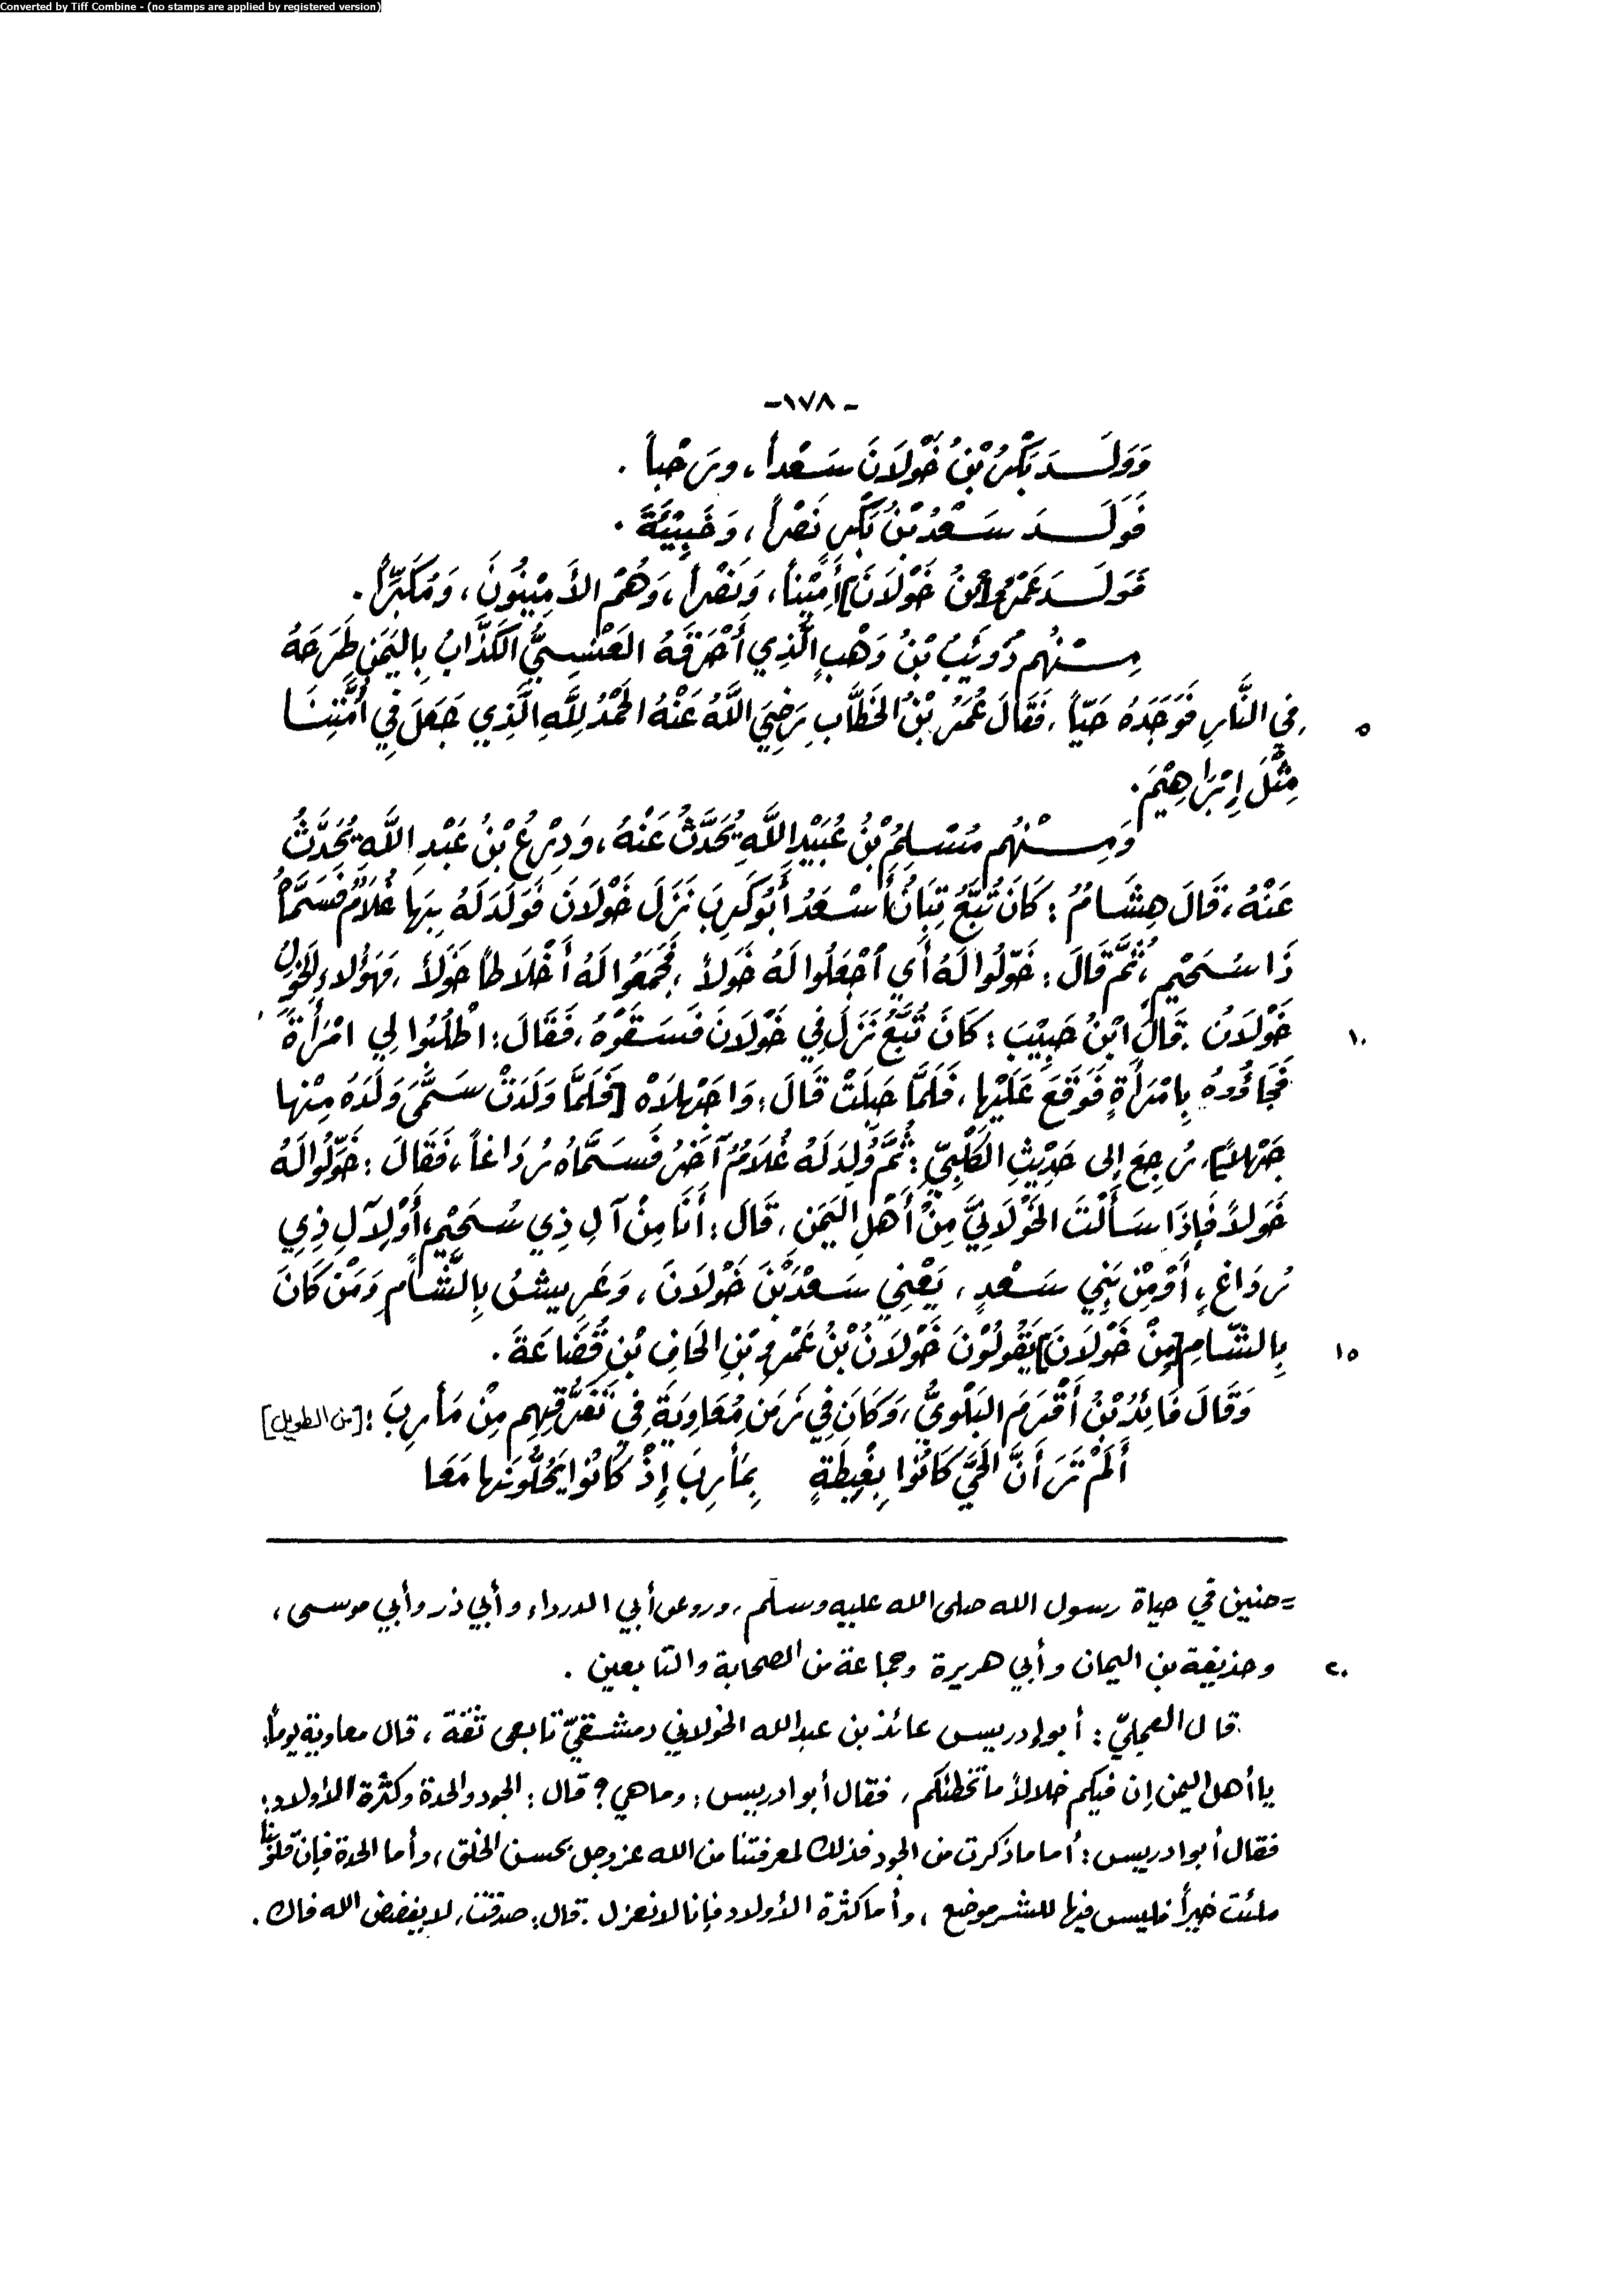 Converted by Tiff Combine - (no stamps are applied by registered version)
-١٧٨-
وَوَلَدَ بَكْرُ بْنُ خَوْلَانَ سَعْداً، ورَحْباً .
فَوَلَدَ سَعْدُ بْنُ بَكْرٍ نَصْراً، وَخَبِيْئَةَ .
فَوَلَدَ عَمْرُو [بْنُ خَوْلَانَ] أَمِيْناً، وَنَصْراً، وَهُمْ الأَمِيْنُونَ، وَمُكَبِّراً .
مِنْهُم ذُوَيْبُ بْنُ وَهْبٍ الَّذِي أَحْرَقَهُ العَنْسِيُّ الكَذَّابُ بِاليَمَنِ طَرَحَهُ
٥ فِي النَّارِ فَوَجَدَهُ حَيّاً، فَقَالَ عُمَرُ بْنُ الخَطَّابِ رَضِيَ اللَّهُ عَنْهُ الحَمْدُ لِلَّهِ الَّذِي جَعَلَ فِي أُمَّتِنَا
مِثْلَ إِبْرَاهِيْمَ.
وَمِنْهُم مُسْلِمُ بْنُ عُبَيْدِ اللَّهِ يُحَدَّثُ عَنْهُ، وَدِرْعُ بْنُ عَبْدِ اللَّهِ يُحَدَّثُ
عَنْهُ، قَالَ هِشَامُ : كَانَ تُبَّعُ تِبَانُ أَسْعَدُ أَبُو كَرِبَ نَزَلَ خَوْلَانَ فَوُلِدَ لَهُ بِهَا غُلَامٌ فَسَمَّاهُ
ذَا سُحَيْمٍ، ثُمَّ قَالَ : خَوِّلُوا لَهُ أَي اجْعَلُوا لَهُ خَوَلاً، فَجَمَعُوا لَهُ أَخْلَاطاً خَوَلاً، فَهَؤُلاءِ الخَوَلُ
١٠ خَوْلَانُ . قَالَ ابْنُ حَبِيْبَ : كَانَ تُبَّعُ نَزَلَ فِي خَوْلَانَ فَسَقَوْهُ، فَقَالَ : اطْلُبُوا لِي امْرَأَةً،
فَجَاؤُوهُ بِامْرَأَةٍ فَوَقَعَ عَلَيْهَا، فَلَمَّا حَبِلَتْ قَالَ : وَاجَهْلَاهْ [فَلَمَّا وَلَدَتْ سَمَّى وَلَدَهُ مِنْها
جَهْلاً]، رَجِعَ إلى حَدِيْثِ الكَلْبِيِّ : ثُمَّ وُلِدَ لَهُ غُلَامٌ آخَرُ فَسَمَّاهُ رُدَاعاً، فَقَالَ : خَوِّلُوا لَهُ
خَوَلاً فَإِذَا سَأَلْتَ الخَوْلَانِيَّ مِنْ أَهْلِ اليَمَنِ، قَالَ : أَنَا مِنْ آلِ ذِي سُحَيْمٍ، أَوْ لِآلِ ذِي
رُدَاعٍ، أَوْ مِنْ بَنِي سَعْدٍ، يَعْنِي سَعْدَ بْنَ خَوْلَانَ، بِالشَّامِ وَمَنْ كَانَ
١٥ بِالشَّامِ [مِنْ خَوْلَانَ] يَقُولُوْنَ خَوْلَانُ بْنُ عَمْرِو بْنِ الحَافِ بْنِ قُضَاعَةَ .
وَقَالَ فَائِدُ بْنُ أَقْرَمَ البَلْوِيُّ، وَكَانَ فِي زَمَنِ مُعَاوِيَةَ فِي تَفَرُّقِهِم مِنْ مَأرِبَ : [من الطويل]
أَلَمْ تَرَ أَنَّ الحَيَّ كَانُوا بِغِبْطَةٍ بِمَأرِبَ إِذْ كَانُوا يَحُلُّونَها مَعَا
= حنين في حياة رسول الله صلى الله عليه وسلّم، وروى عن أبي الدرداء وأبي ذر وأبي موسى،
٢٠ وحذيفة بن اليمان وأبي هريرة وجماعة من الصحابة والتابعين .
قال العجليّ : أبو إدريس عائذ بن عبد الله الخولاني دمشقيّ تابعي ثقة، قال معاوية يوماً:
يا أهل اليمن إن فيكم خلالاً ما تخطئكم، فقال أبو ادريس : وما هي؟ قال : الجود والحدة وكثرة الأولاد:
فقال أبو ادريس : أما ما ذكرت من الجود فذلك لمعرفتنا من الله عز وجل بحسن الخلق، وأما الحدة فإنّ قلوبنا
ملئت خيراً فليس فيها للشر موضع، وأما كثرة الأولاد فإنا لا نعزل . قال : صدقت، لا يفضض الله فاك .